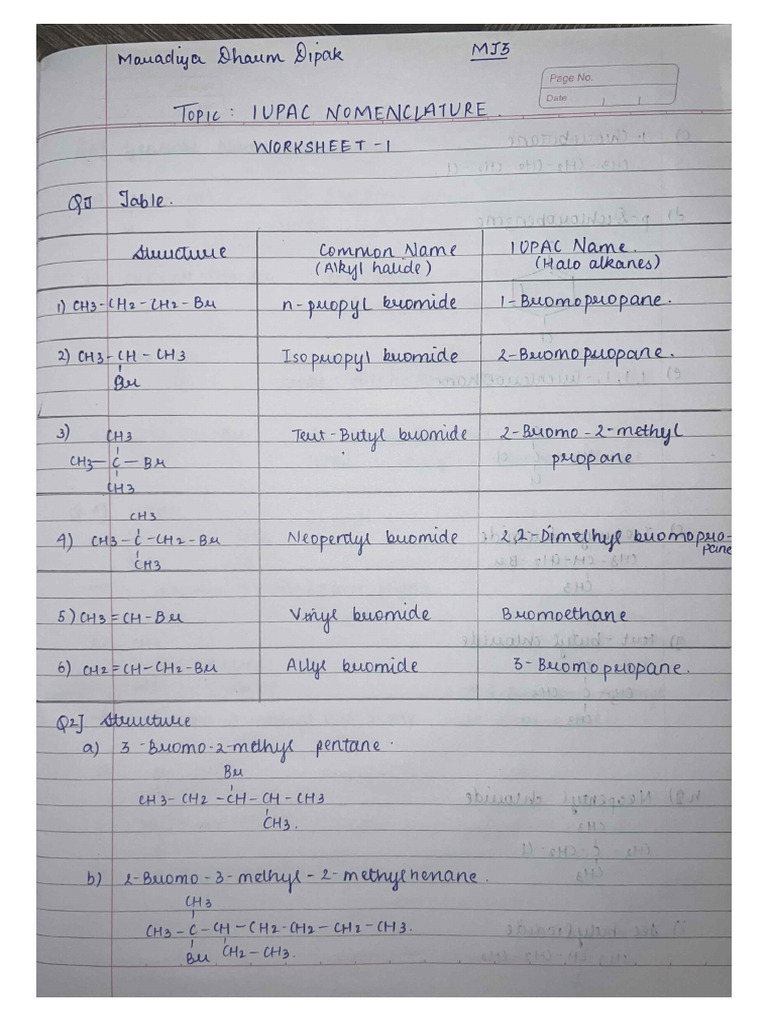 Mavadiya Dharm Dipak MJ3
Page No.
Date
TOPIC: IUPAC NOMENCLATURE.
WORKSHEET-1
Q1] Table.
Structure Common Name IUPAC Name.
(Alkyl halide) (Halo alkanes)
1) CH3-CH2-CH2-Br n-propyl bromide 1-Bromopropane.
2) CH3-CH-CH3 Isopropyl bromide 2-Bromopropane.
Br
3) CH3 Tert-Butyl bromide 2-Bromo-2-methyl
CH3-C-Br propane
CH3
CH3
4) CH3-C-CH2-Br Neopentyl bromide 2,2-Dimethyl bromopro-
CH3 pane
5) CH3=CH-Br Vinyl bromide Bromoethane
6) CH2=CH-CH2-Br Allyl bromide 3-Bromopropane.
Q2] Structure
a) 3-Bromo-2-methyl pentane.
Br
CH3-CH2-CH-CH-CH3
CH3.
b) 2-Bromo-3-methyl-2-methylhenane.
CH3
CH3-C-CH-CH2-CH2-CH2-CH3.
Br CH2-CH3.